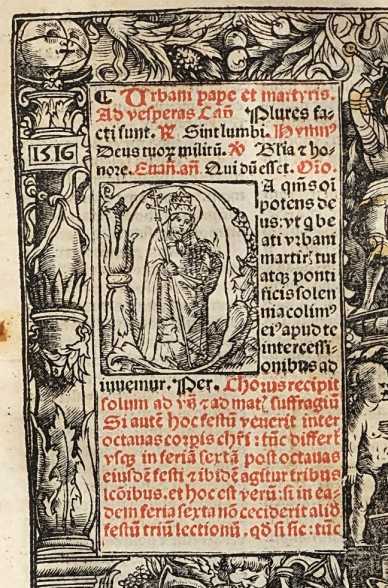 1516
¶ Urbani pape et martyris.
Ad vesperas Cañ Plures fa-
cti sunt. ℟ Sint lumbi. Hymnꝰ
Deus tuoꝝ militũ. ℣ Gl’ia ⁊ ho-
nore. Euan. añ. Qui dũ esset. Or̃o.
DA q̃ms oĩ
potens de
us: vt q̃ be
ati vrbani
martirꝭ tui
atqꝫ ponti
ficis solen
nia colimꝰ
eiꝰ apud te
intercessi-
onibus ad
iuuemur. Per. Chorus recipit
solum ad vꝰ̃ ⁊ ad mat’. suffragiũ
Si autẽ hoc festũ venerit inter
octauas corꝑis chr̃i: tũc differt̃
vsqꝫ in feriã sextã post octauas
eiusdẽ festi ⁊ ibidẽ agitur tribus
lcõibus. et hoc est verũ: si in ea-
dem feria sexta nõ ceciderit aliđ
festũ triũ lectionũ. qđ si sic: tũc